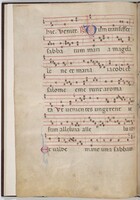 hic. venite. Cum transisset
sabba tum mari a magda
le ne et mari a iacobi et
salome eme runt aroma
ta ut veni en tes ungerent ie
sum alleluia alle lu ia
Et valde mane una sabbato